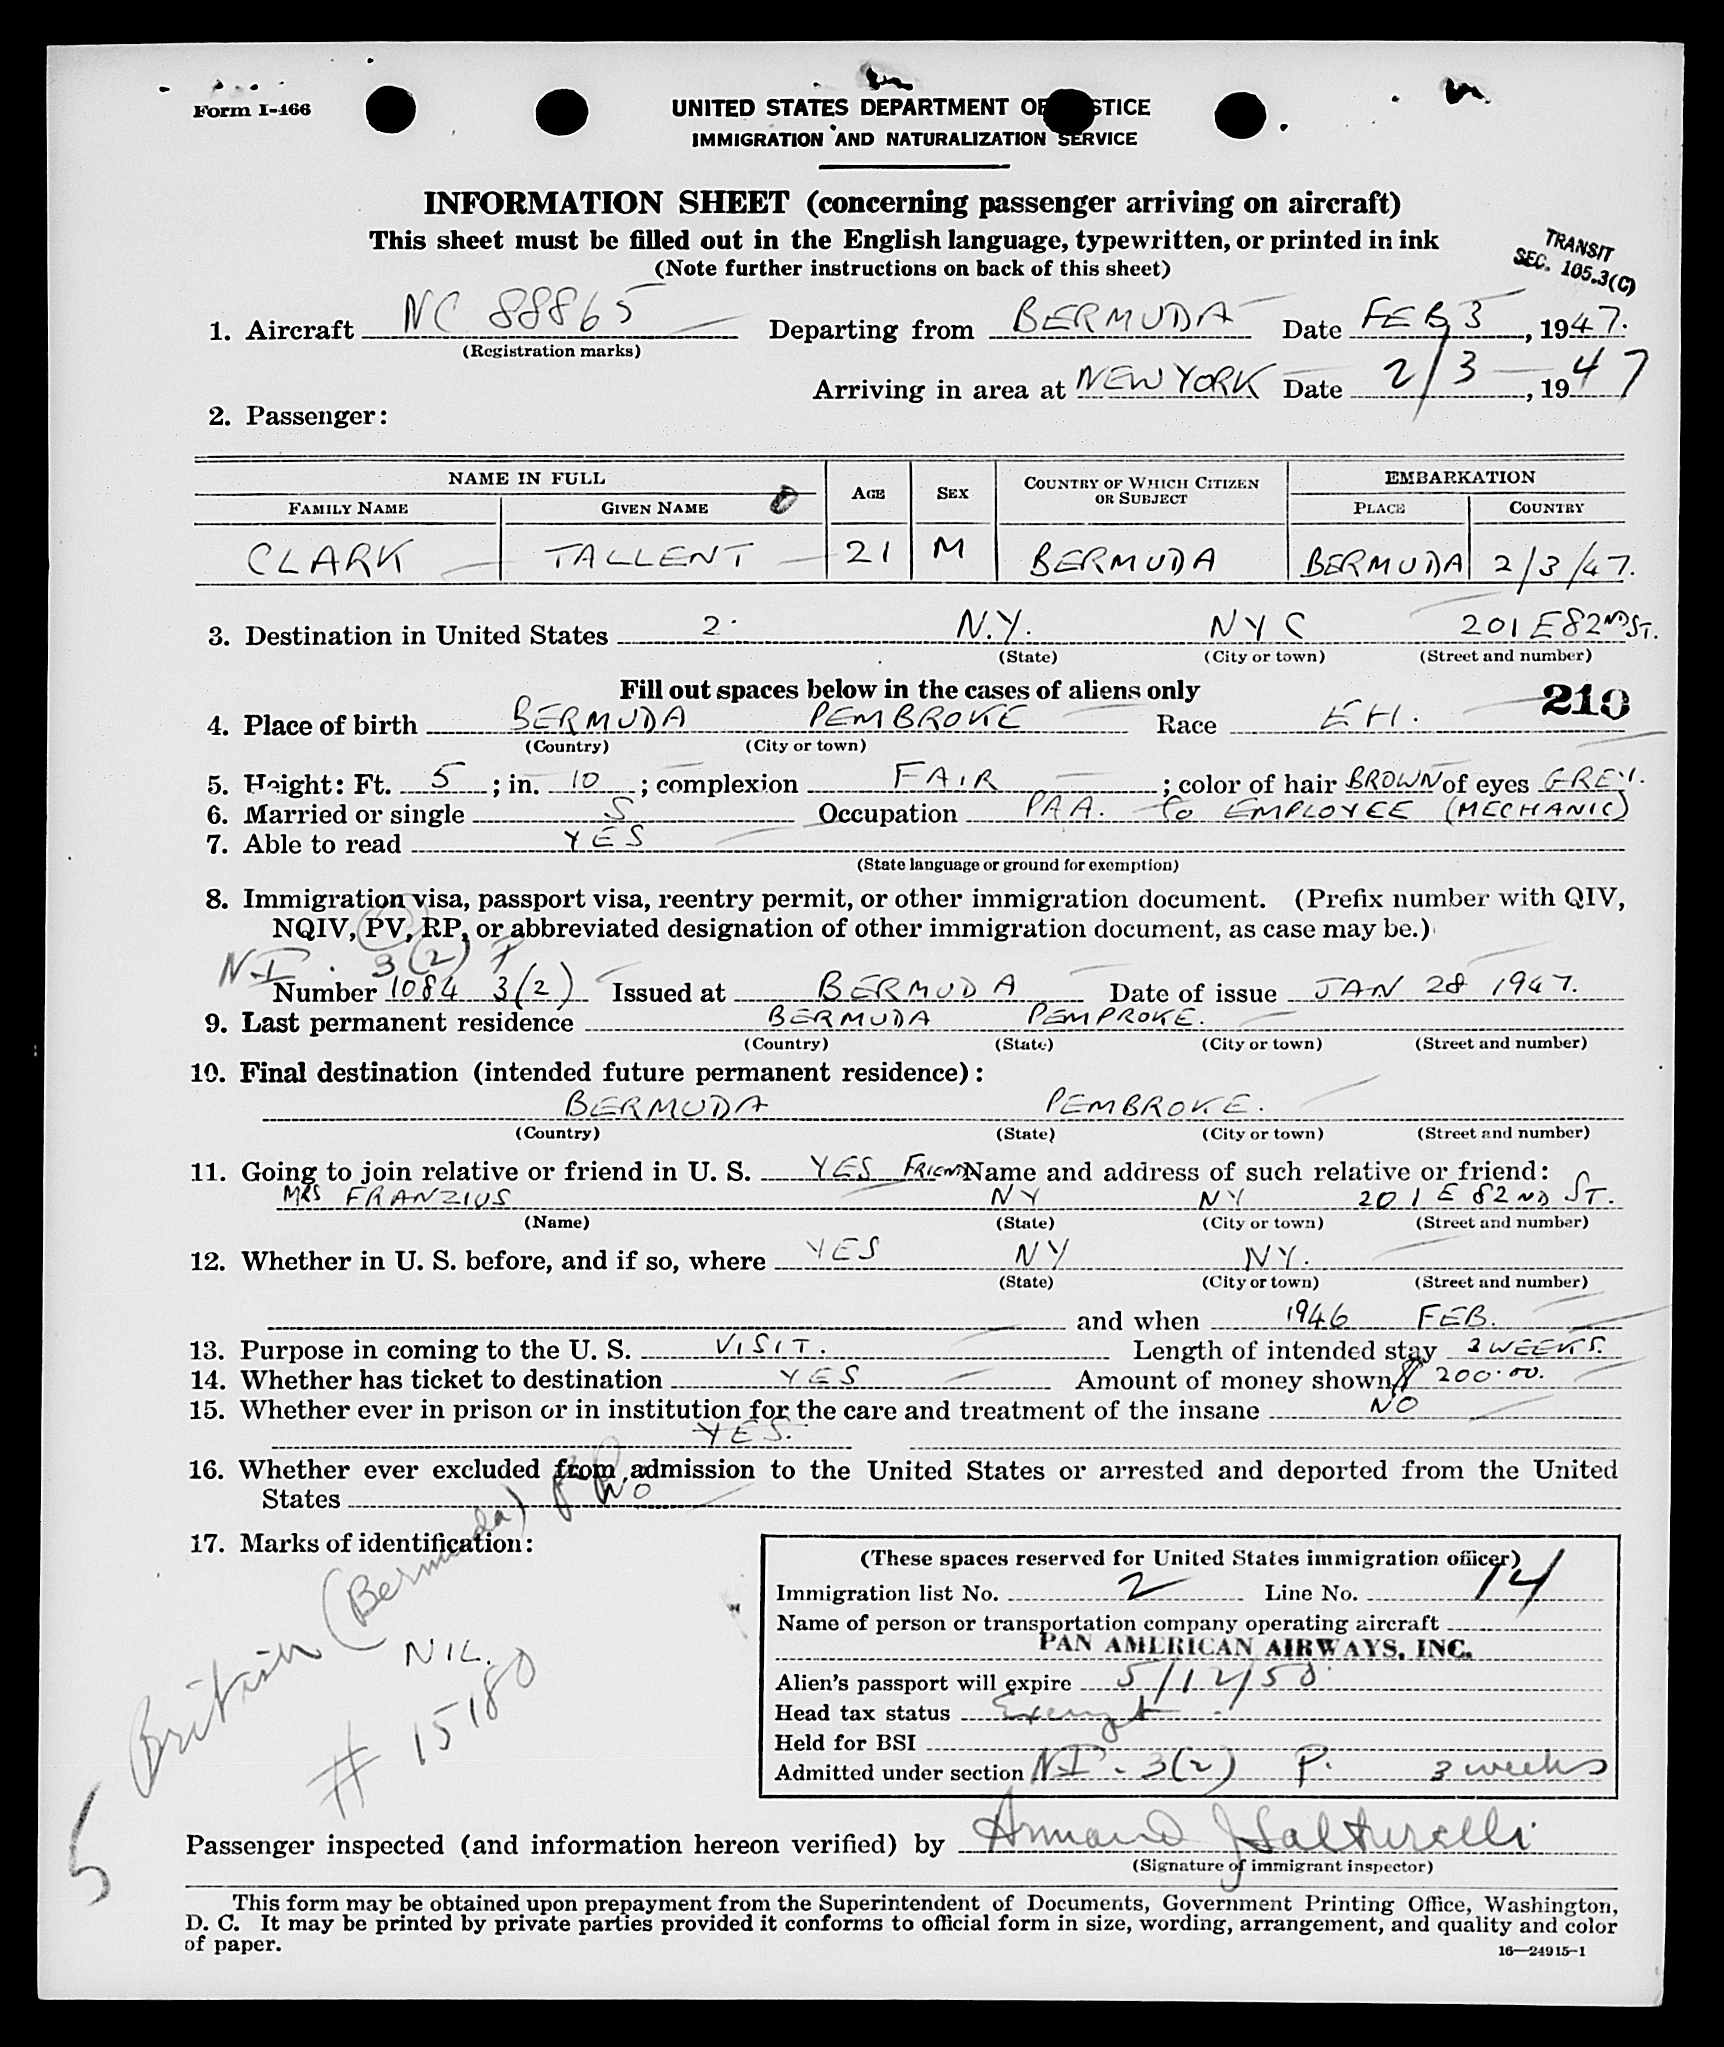 Form I-466
UNITED STATES DEPARTMENT OF STICE
IMMIGRATION AND NATURALIZATION SERVICE
INFORMATION SHEET (concerning passenger arriving on aircraft)
This sheet must be filled out in the English language, typewritten, or printed in ink
(Note further instructions on back of this sheet)
TRANSIT
SEC. 105.3(C)
1. Aircraft NC 88865 Departing from BERMUDA Date FEB 3, 1947.
(Registration marks)
Arriving in area at NEW YORK Date 2/3, 1947
2. Passenger:
NAME IN FULL
FAMILY NAME GIVEN NAME AGE SEX COUNTRY OF WHICH CITIZEN OR SUBJECT EMBARKATION PLACE COUNTRY
CLARK TALLENT 21 M BERMUDA BERMUDA 2/3/47.
3. Destination in United States 2. N.Y. NYC 201 E 82ND ST.
(State) (City or town) (Street and number)
Fill out spaces below in the cases of aliens only
210
4. Place of birth BERMUDA PEMBROKE Race
(Country) (City or town)
5. Height: Ft. 5; in. 10; complexion FAIR; color of hair BROWN of eyes GREY.
6. Married or single S Occupation PAA. Co EMPLOYEE (MECHANIC)
7. Able to read YES
(State language or ground for exemption)
8. Immigration visa, passport visa, reentry permit, or other immigration document. (Prefix number with QIV,
NQIV, PV, RP, or abbreviated designation of other immigration document, as case may be.)
N-I. 3(2) P
Number 1084 3(2) Issued at BERMUDA Date of issue JAN 28 1947.
9. Last permanent residence BERMUDA PEMPROKE.
(Country) (State) (City or town) (Street and number)
10. Final destination (intended future permanent residence):
BERMUDA PEMBROKE.
(Country) (State) (City or town) (Street and number)
11. Going to join relative or friend in U. S. YES FRIEND Name and address of such relative or friend:
MRS FRANZIUS NY NY 201 E 82ND ST.
(Name) (State) (City or town) (Street and number)
12. Whether in U. S. before, and if so, where YES NY NY.
(State) (City or town) (Street and number)
and when 1946 FEB.
13. Purpose in coming to the U. S. VISIT. Length of intended stay 3 WEEKS.
14. Whether has ticket to destination YES Amount of money shown $ 200.00.
15. Whether ever in prison or in institution for the care and treatment of the insane NO
YES.
16. Whether ever excluded from admission to the United States or arrested and deported from the United
States NO
17. Marks of identification:
NIL.
British (Bermuda)
# 15180
5
(These spaces reserved for United States immigration officer)
Immigration list No. 2 Line No. 14
Name of person or transportation company operating aircraft
PAN AMERICAN AIRWAYS, INC.
Alien's passport will expire 5/12/50
Head tax status Exempt
Held for BSI
Admitted under section N-I - 3(2) P. 3 weeks
Passenger inspected (and information hereon verified) by Armand J Salturelli
(Signature of immigrant inspector)
This form may be obtained upon prepayment from the Superintendent of Documents, Government Printing Office, Washington,
D. C. It may be printed by private parties provided it conforms to official form in size, wording, arrangement, and quality and color
of paper.
16—24915-1